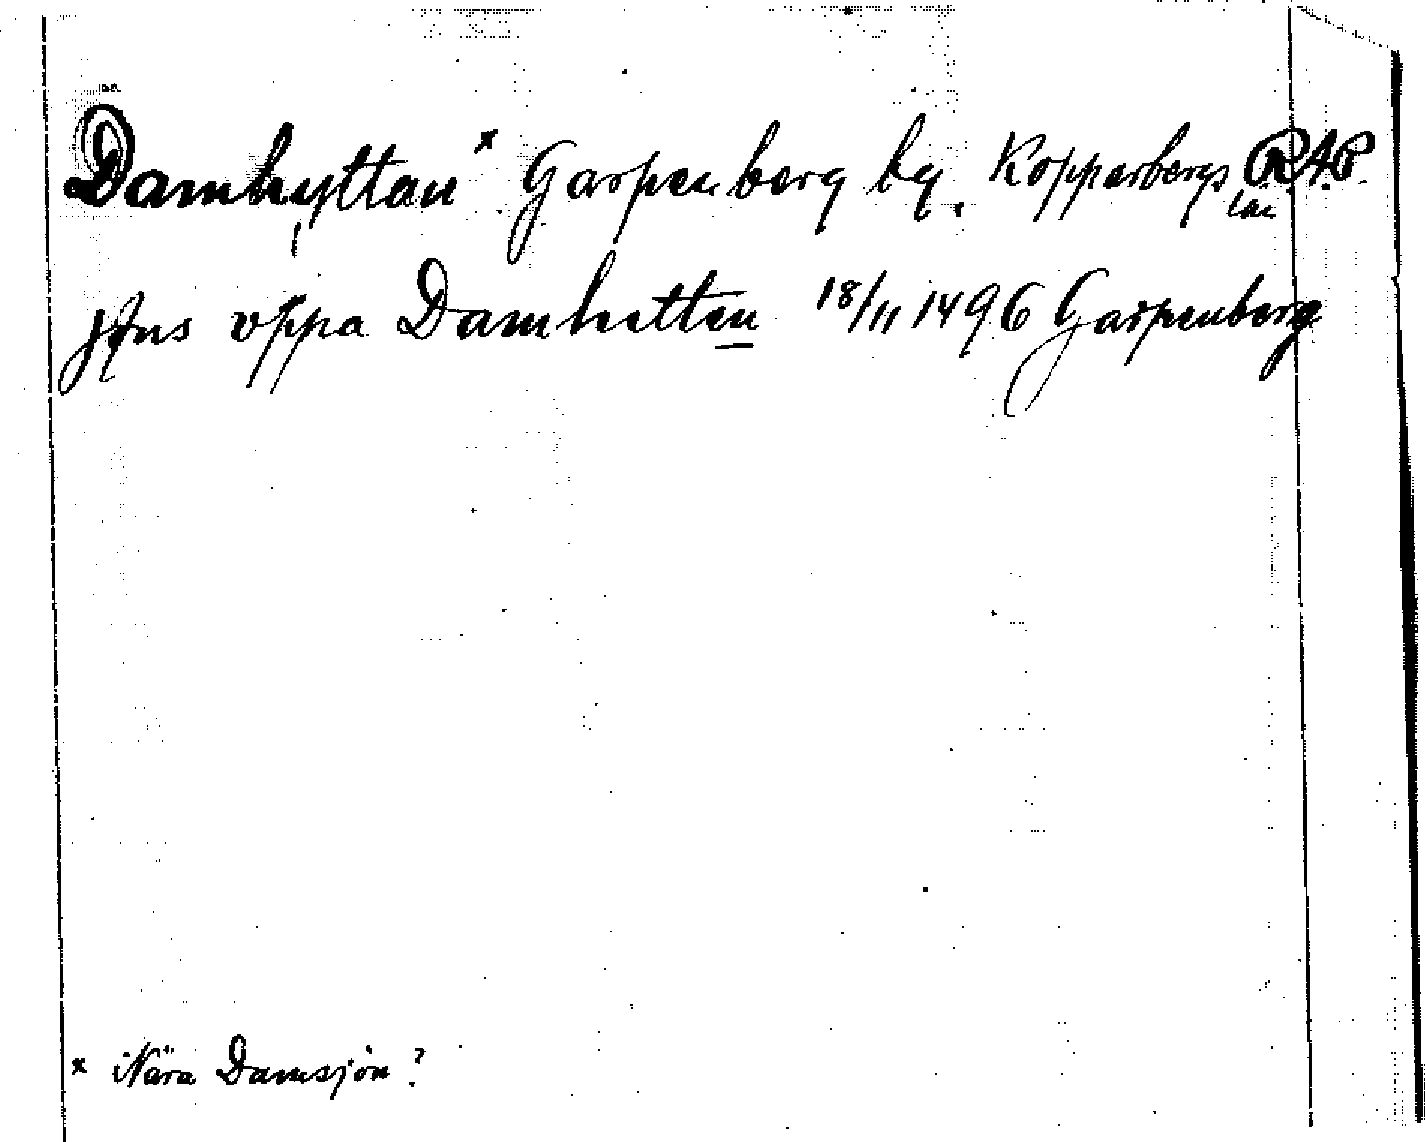 Damhyttan x Garpenberg bg. Kopparbergs län RAP.
jŏns vppa Damhetten 18/11 1496 Garpenberg
x Nära Damsjön?